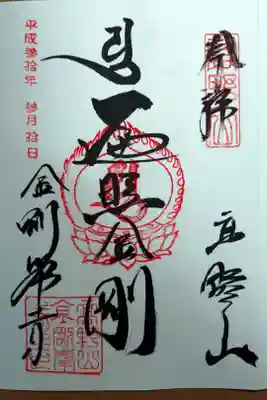 奉拝
高野山
遍照金剛
平成参拾年 参月拾日
金剛峯寺